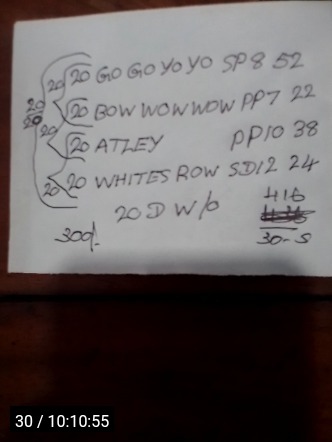 20 GO GO YO YO SP8 52
20
20 BOW WOW WOW PP7 22
20
20
20
20 ATLEY PP10 38
20 20 WHITES ROW SD12 24
20 D W/O 416
300/.
30-S
30 / 10:10:55